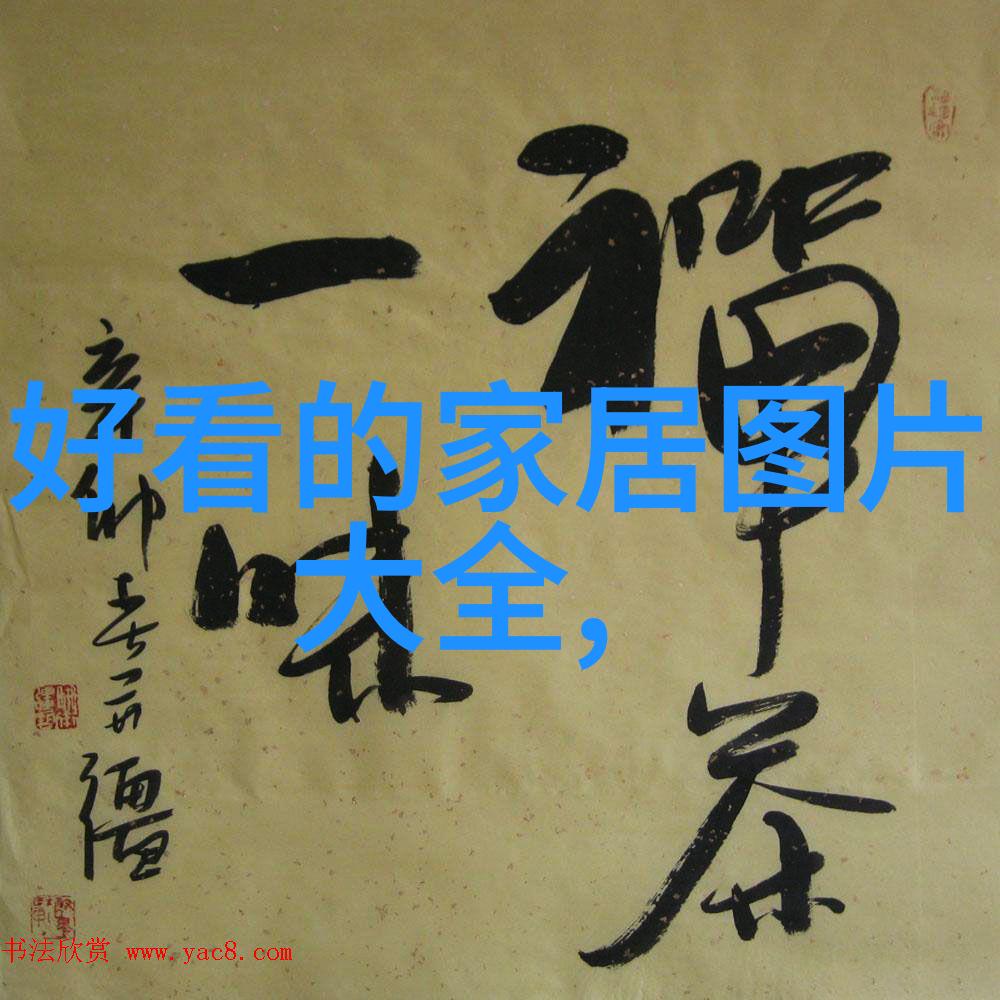 禪茶
一味
辛卯春
好看的家居图片
大全,
书法欣赏 www.yac8.com